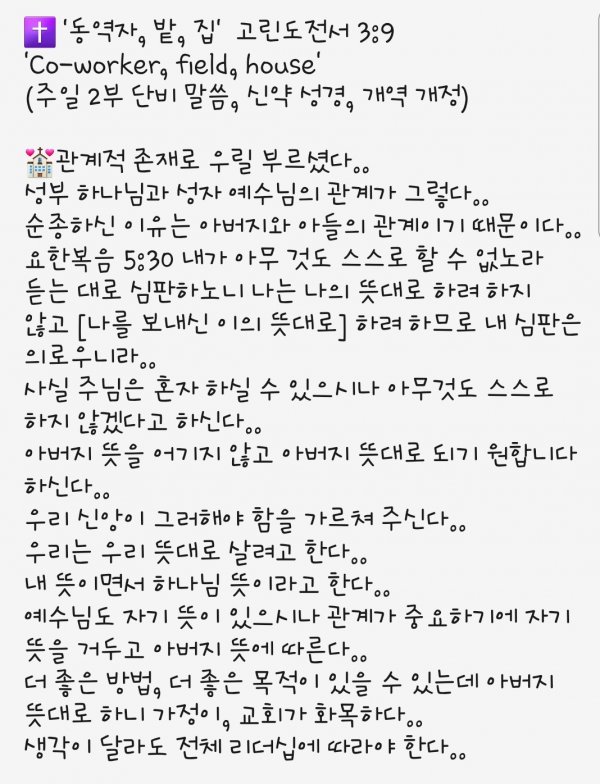 ✝️ '동역자, 밭, 집' 고린도전서 3:9
'Co-worker, field, house'
(주일 2부 단비 말씀, 신약 성경, 개역 개정)
💒관계적 존재로 우릴 부르셨다..
성부 하나님과 성자 예수님의 관계가 그렇다..
순종하신 이유는 아버지와 아들의 관계이기 때문이다..
요한복음 5:30 내가 아무 것도 스스로 할 수 없노라
듣는 대로 심판하노니 나는 나의 뜻대로 하려 하지
않고 [나를 보내신 이의 뜻대로] 하려 하므로 내 심판은
의로우니라..
사실 주님은 혼자 하실 수 있으시나 아무것도 스스로
하지 않겠다고 하신다..
아버지 뜻을 어기지 않고 아버지 뜻대로 되기 원합니다
하신다..
우리 신앙이 그러해야 함을 가르쳐 주신다..
우리는 우리 뜻대로 살려고 한다..
내 뜻이면서 하나님 뜻이라고 한다..
예수님도 자기 뜻이 있으시나 관계가 중요하기에 자기
뜻을 거두고 아버지 뜻에 따른다..
더 좋은 방법, 더 좋은 목적이 있을 수 있는데 아버지
뜻대로 하니 가정이, 교회가 화목하다..
생각이 달라도 전체 리더십에 따라야 한다..